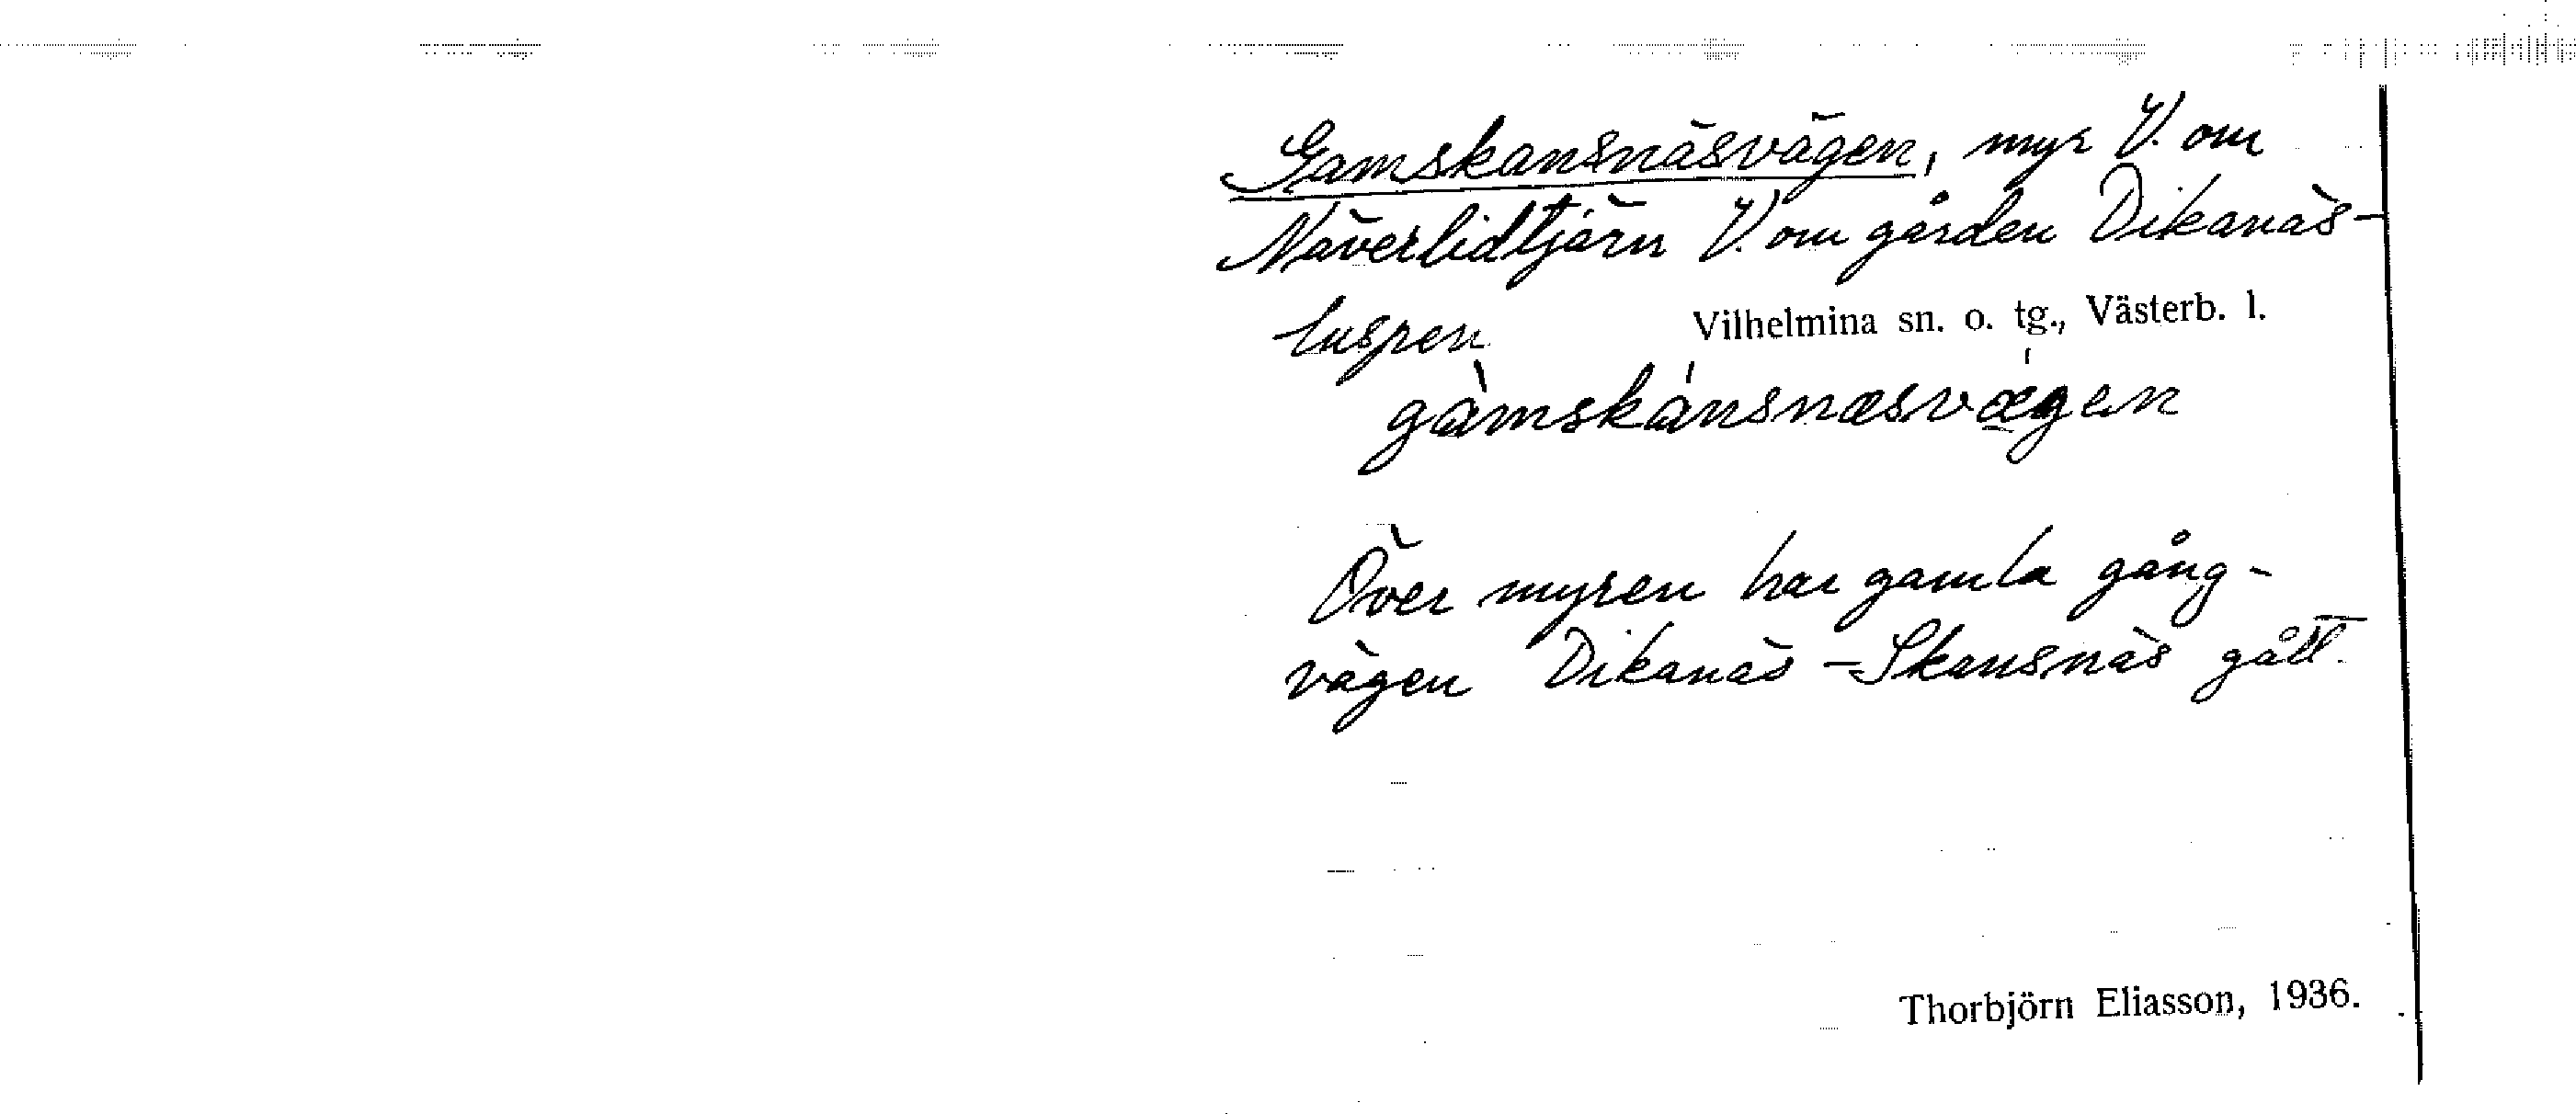 Gamskansnäsvägen, myr V. om
Näverlidtjärn V. om gården Dikanäs-
luspen
Vilhelmina sn. o. tg., Västerb. l.
gàmskánsnæsvǽ̱gen
Över myren har gamla gång-
vägen Dikanäs - Skansnäs gått.
Thorbjörn Eliasson, 1936.